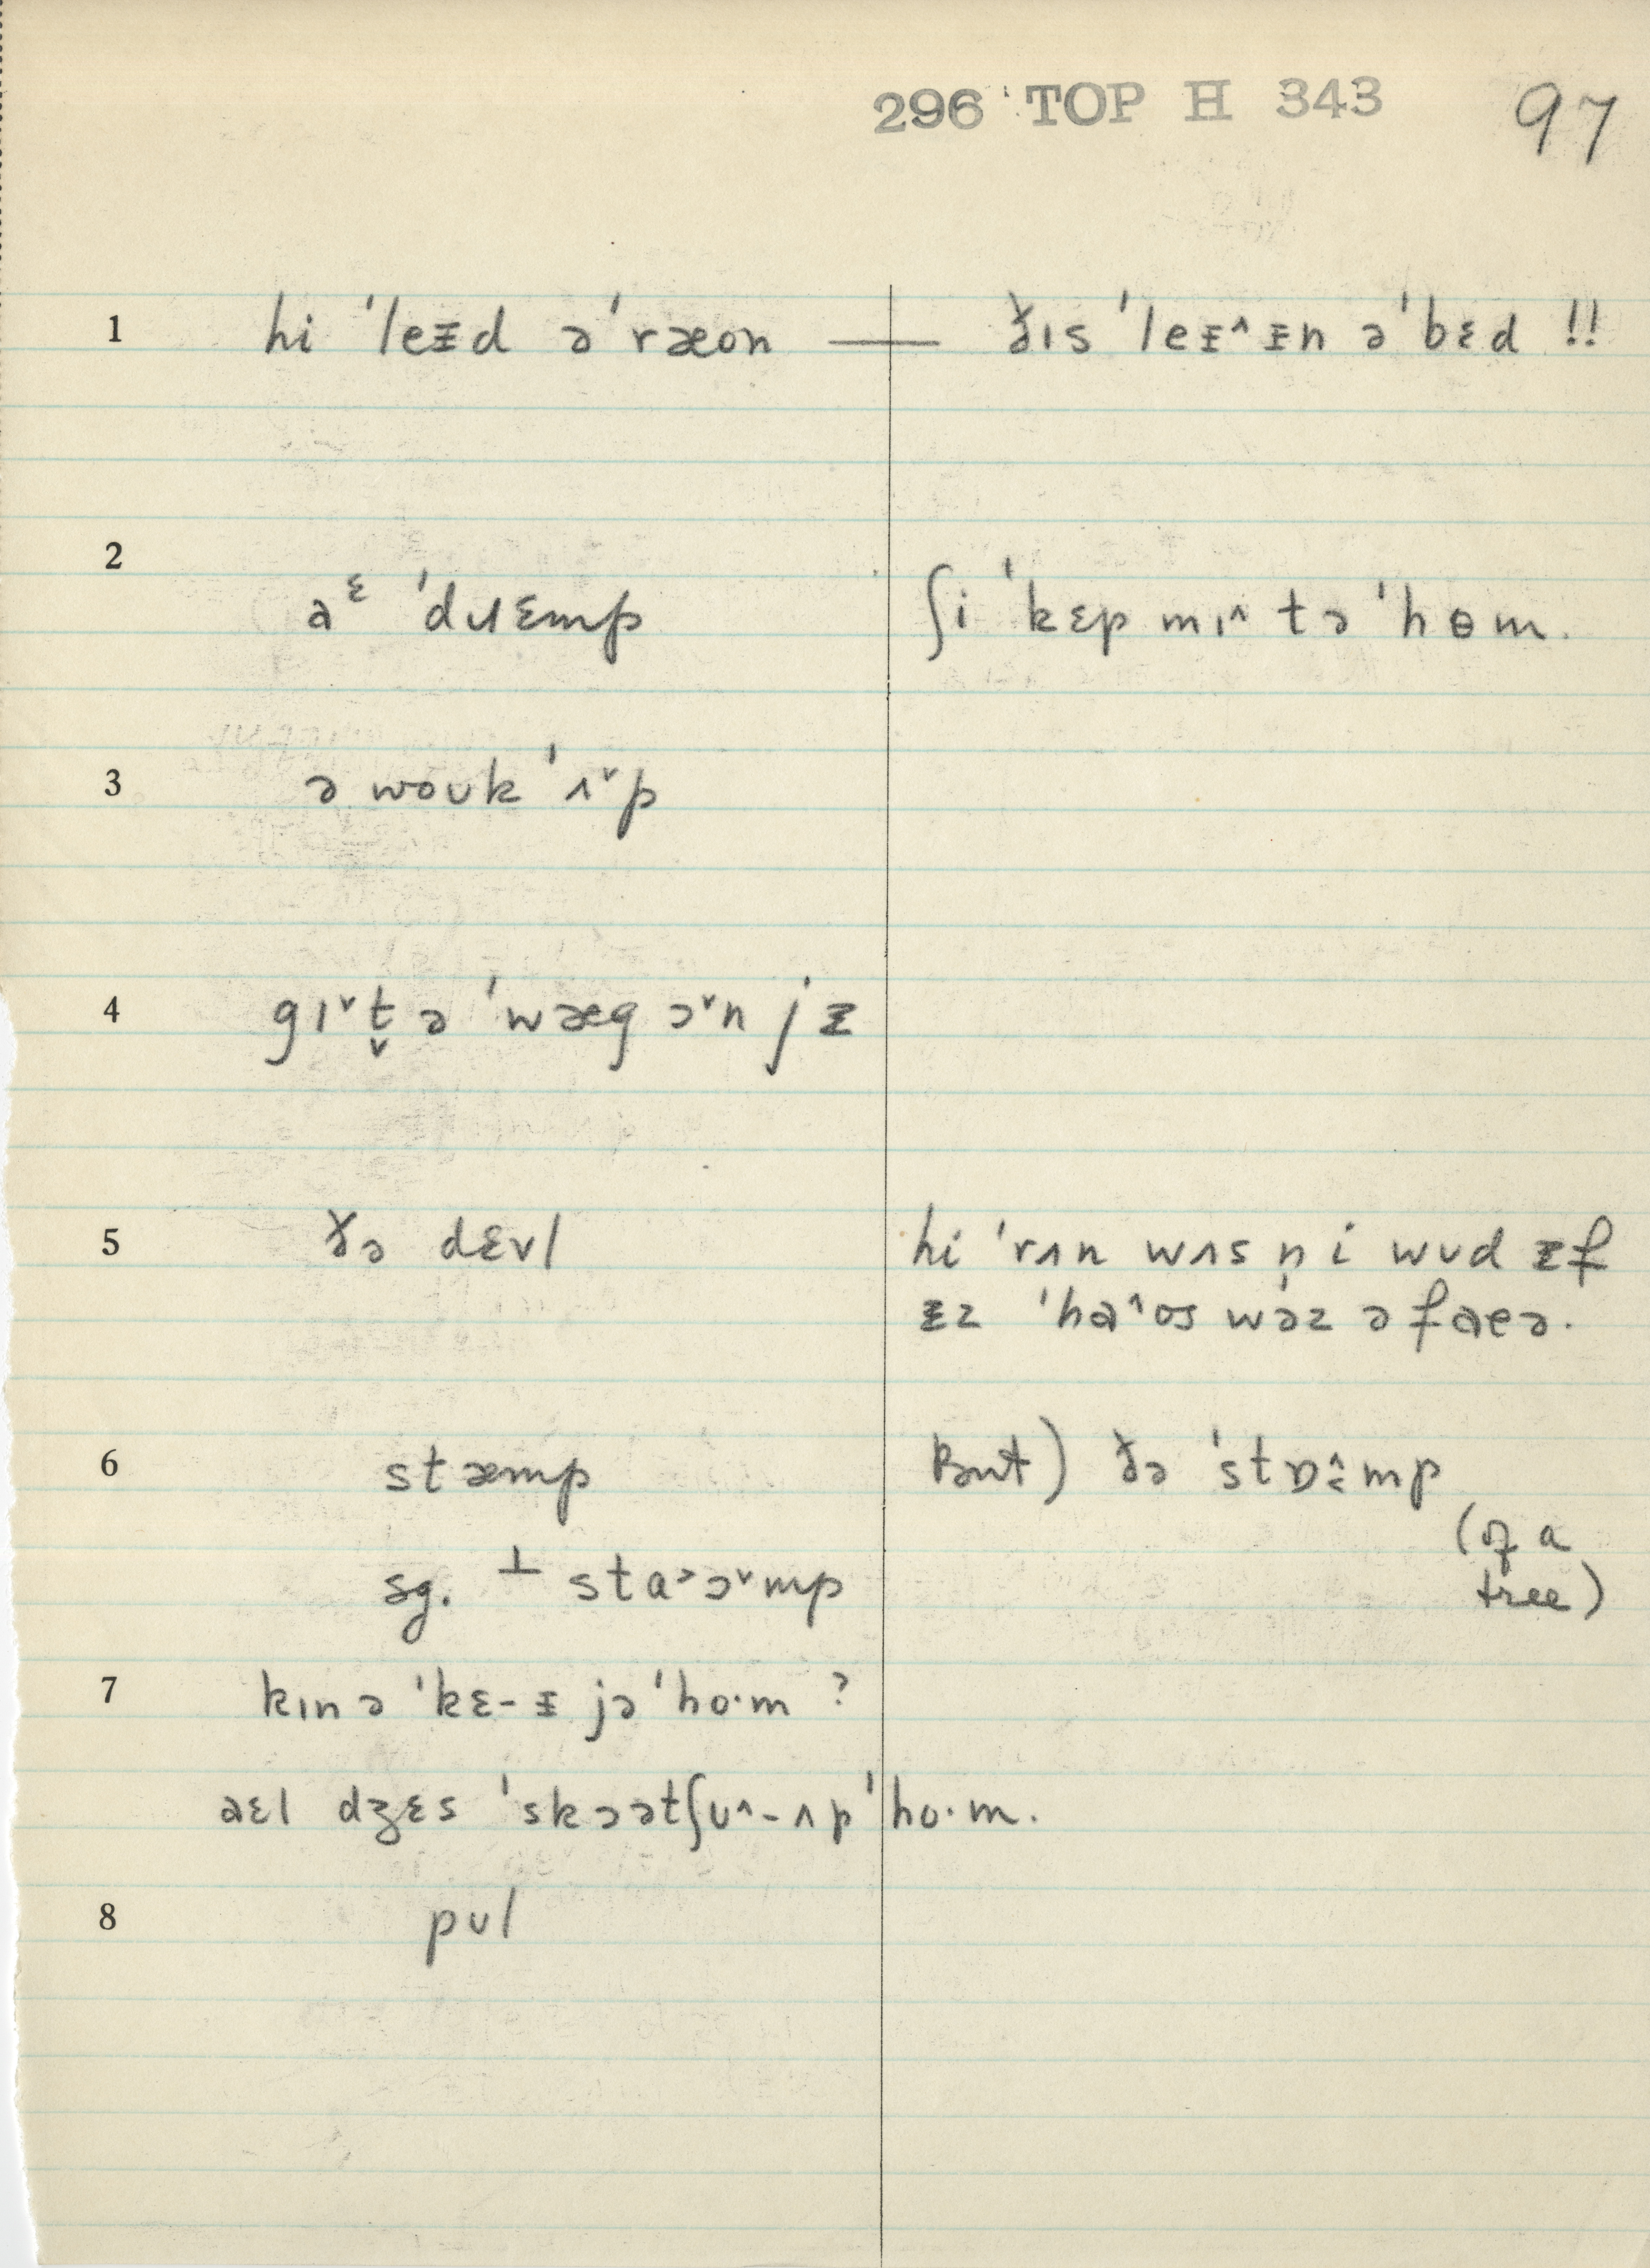 296 TOP H 343 97
1 hi ˈleᵻd əˈræon — ðɪs ˈleᵻ^ ᵻn əˈbɛd !!
2 aᵋ ˈdɹɛmp ʃi ˈkɛp mɪ^ tə ˈhɵm.
3 ə woʊk ˈʌˇp
4 gɪˇt̬ ə ˈwæg əˇn jᵻ
5 ðə dɛvl hi ˈrʌn wʌs n̩ i wʊd ᵻf
ᵻz ˈha^os wəz ə faeə.
6 stæmp But) ðə ˈstɒ^ːmp
(of a
sg. ⊥ sta˃əˇmp tree)
7 kɪn ə ˈkɛ-ᵻ jə ˈho·m ?
aɛl dʒɛs ˈskɔət ʃʊ^-ʌp ˈho·m.
8 pʊl